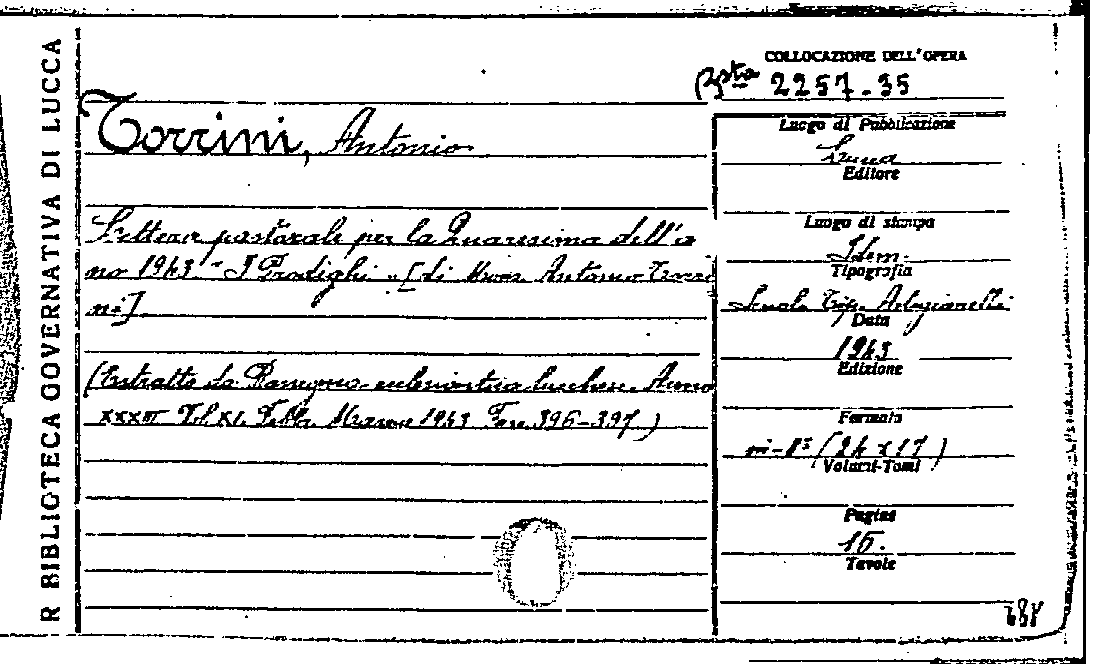 R BIBLIOTECA GOVERNATIVA DI LUCCA
COLLOCAZIONE DELL'OPERA
Bsta 2257.35
Torrini, Antonio
Lettera pastorale per la Quaresima dell'a
no 1943. "I Prodighi" [di Mons. Antonio Torri
ni].
(Estratto da Rassegna ecclesiastica lucchese. Anno
XXXIII Vol. XI. Febbr. Marzo 1943 Fasc. 396-397)
Luogo di Pubblicazione
Lucca
Editore
Luogo di stampa
Idem.
Tipografia
Scuola Tip. Artigianelli
Data
1943
Edizione
Formato
in-8° (24 x 17)
Volumi-Tomi
Pagine
15.
Tavole